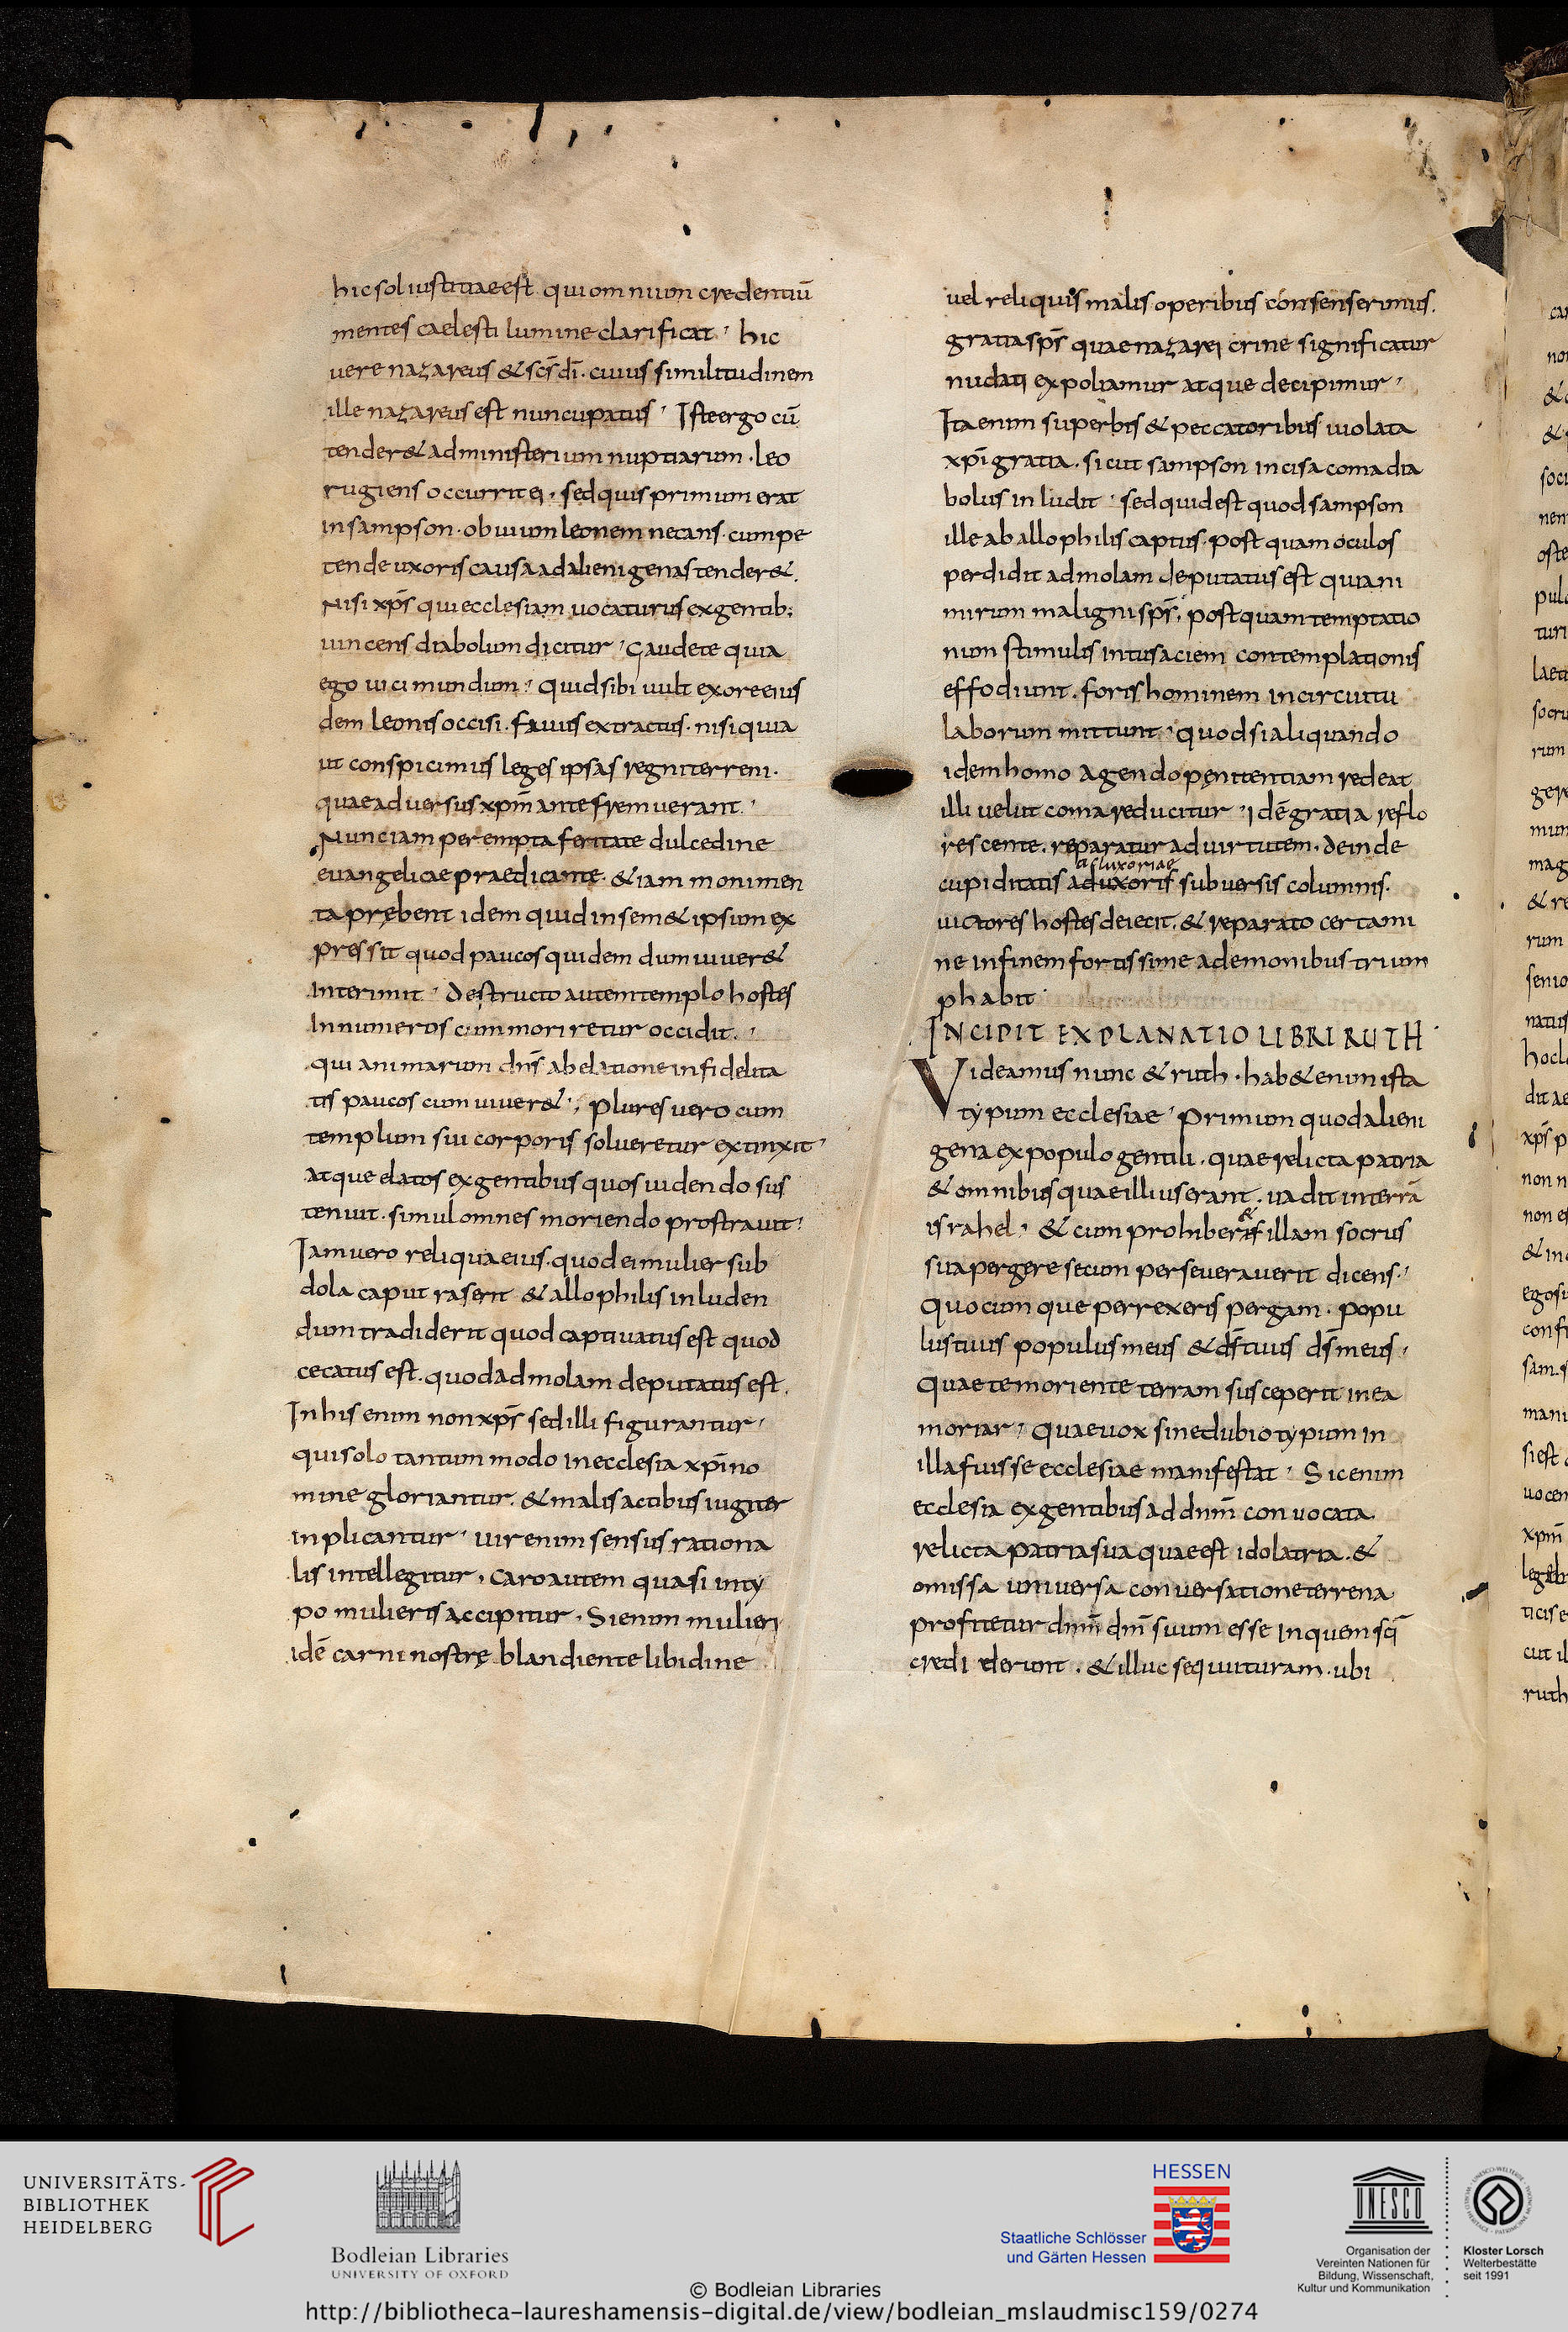 hic sol iustitiae est qui omnium credentiū
mentes caelesti lumine clarificat · hic
uere nazareus & sc̄s dī · cuius similitudinem
ille nazareus est nuncupatus · Iste ergo cū
tender& ad ministerium nuptiarum · leo
rugiens occurrit ei · sed quis primum erat
in sampson · obuium leonem necans · cum pe
tende uxoris causa ad alienigenas tender& ·
Nisi xp̄s qui ecclesiam uocaturus ex gentib;
uincens diabolum dicitur · Gaudete quia
ego uici mundum · Quid sibi uult ex ore eius
dem leonis occisi · fauus extractus · nisi quia
ut conspicimus leges ipsas regni terreni ·
quae aduersus xpm̄ ante fremuerant ·
Nunc iam perempta feritate dulcedine
euangelicae praedicante · & iam monimen
ta prębent idem quid in sem& ipsum ex
pressit quod paucos quidem dum uiuer&
interimit · destructo autem templo hostes
Innumeros cum moriretur occidit ·
qui animarum dn̄s ab elatione infidelita
tis paucos cum uiuer& · plures uero cum
templum sui corporis solueretur extinxit ·
atque elatos ex gentibus quos uidendo sus
tenuit · simul omnes moriendo prostrauit ·
Iam uero reliqua eius · quod ei mulier sub
dola caput raserit & allophilis inluden
dum tradiderit quod captiuatus est quod
cecatus est · quod ad molam deputatus est ·
In his enim non xp̄s sed illi figurantur ·
qui solo tantum modo in ecclesia xp̄i no
mine gloriantur · & malis actibus iugiter
inplicantur · uir enim sensus rationa
lis intellegitur · caro autem quasi in ty
po mulieris accipitur · Si enim mulieri
idē carni nostrę blandiente libidine
uel reliquis malis operibus consenserimus ·
gratia sp̄s quae nazarei crine significatur
nudati expoliamur atque decipimur ·
Ita enim superbis & peccatoribus uiolata
xp̄i gratia · sicut sampson incisa coma dia
bolus inludit · sed quid est quod sampson
ille ab allophilis captus · post quam oculos
perdidit ad molam deputatus est quia ni
mirum maligni sp̄s · post quam temptatio
num stimulis intus aciem contemplationis
effodiunt · foris hominem in circuitu
laborum mittunt · quod si aliquando
idem homo agendo pęnitentiam redeat
illi uelut coma reducitur · idē gratia reflo
rescente · reparatur ad uirtutem · deinde
a fluxoriae
cupiditatis ad uxoris subuersis columnis ·
uictores hostes deiecit · & reparato certami
ne in finem fortissime a demonibus trium
phabit ·
INCIPIT EXPLANATIO LIBRI RUTH ·
Videamus nunc & ruth · hab& enim ista
typum ecclesiae · primum quod alieni
gena ex populo gentili · quae relicta patria
& omnibus quae illius erant · uadit in terrā
israhel · & cum prohiberis illam socrus
&
sua pergere secum perseuerauerit dicens ·
Quocumque perrexeris pergam · popu
lus tuus populus meus & ds̄ tuus ds̄ meus ·
Quae te moriente terram susceperit in ea
moriar · Quae uox sine dubio typum in
illa fuisse ecclesiae manifestat · Sic enim
ecclesia ex gentibus ad dnm̄ conuocata
relicta patria sua quae est idolatria · &
omissa uniuersa conuersatione terrena
profitetur dnm̄ dm̄ suum esse in quem sc̄i
crediderunt · & illuc sequuturam · ubi
UNIVERSITÄTS-
BIBLIOTHEK
HEIDELBERG
Bodleian Libraries
UNIVERSITY OF OXFORD
HESSEN
Staatliche Schlösser
und Gärten Hessen
UNESCO
Organisation der
Vereinten Nationen für
Bildung, Wissenschaft,
Kultur und Kommunikation
Kloster Lorsch
Welterbestätte
seit 1991
© Bodleian Libraries
http://bibliotheca-laureshamensis-digital.de/view/bodleian_mslaudmisc159/0274